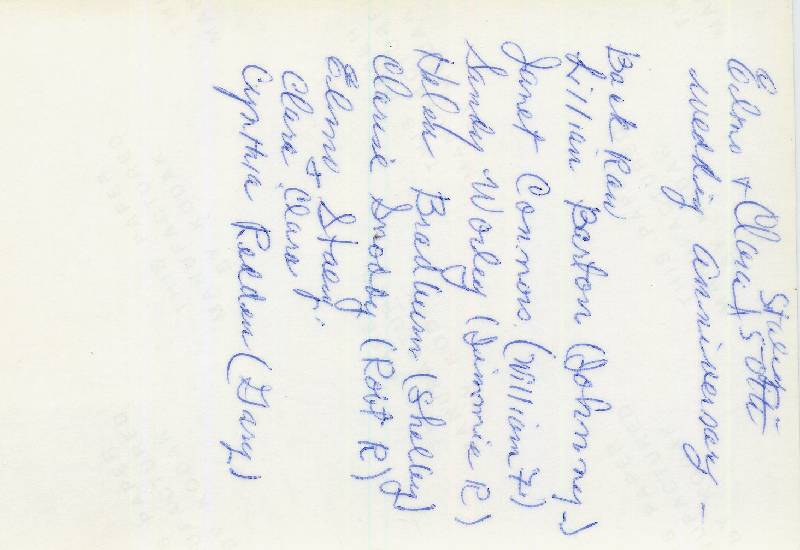 Elmo & Clara Stacy
50th
wedding anniversary -
Back Row
Lillian Barton (Johnny)
Janet Connors (William F)
Sandy Worley (Jimmie R)
Helen Bradburn (Shelley)
Clarie Snoddy (Robt R)
Elmo & Stacy
Clara, Clara
Cynthia Redden (Gary)